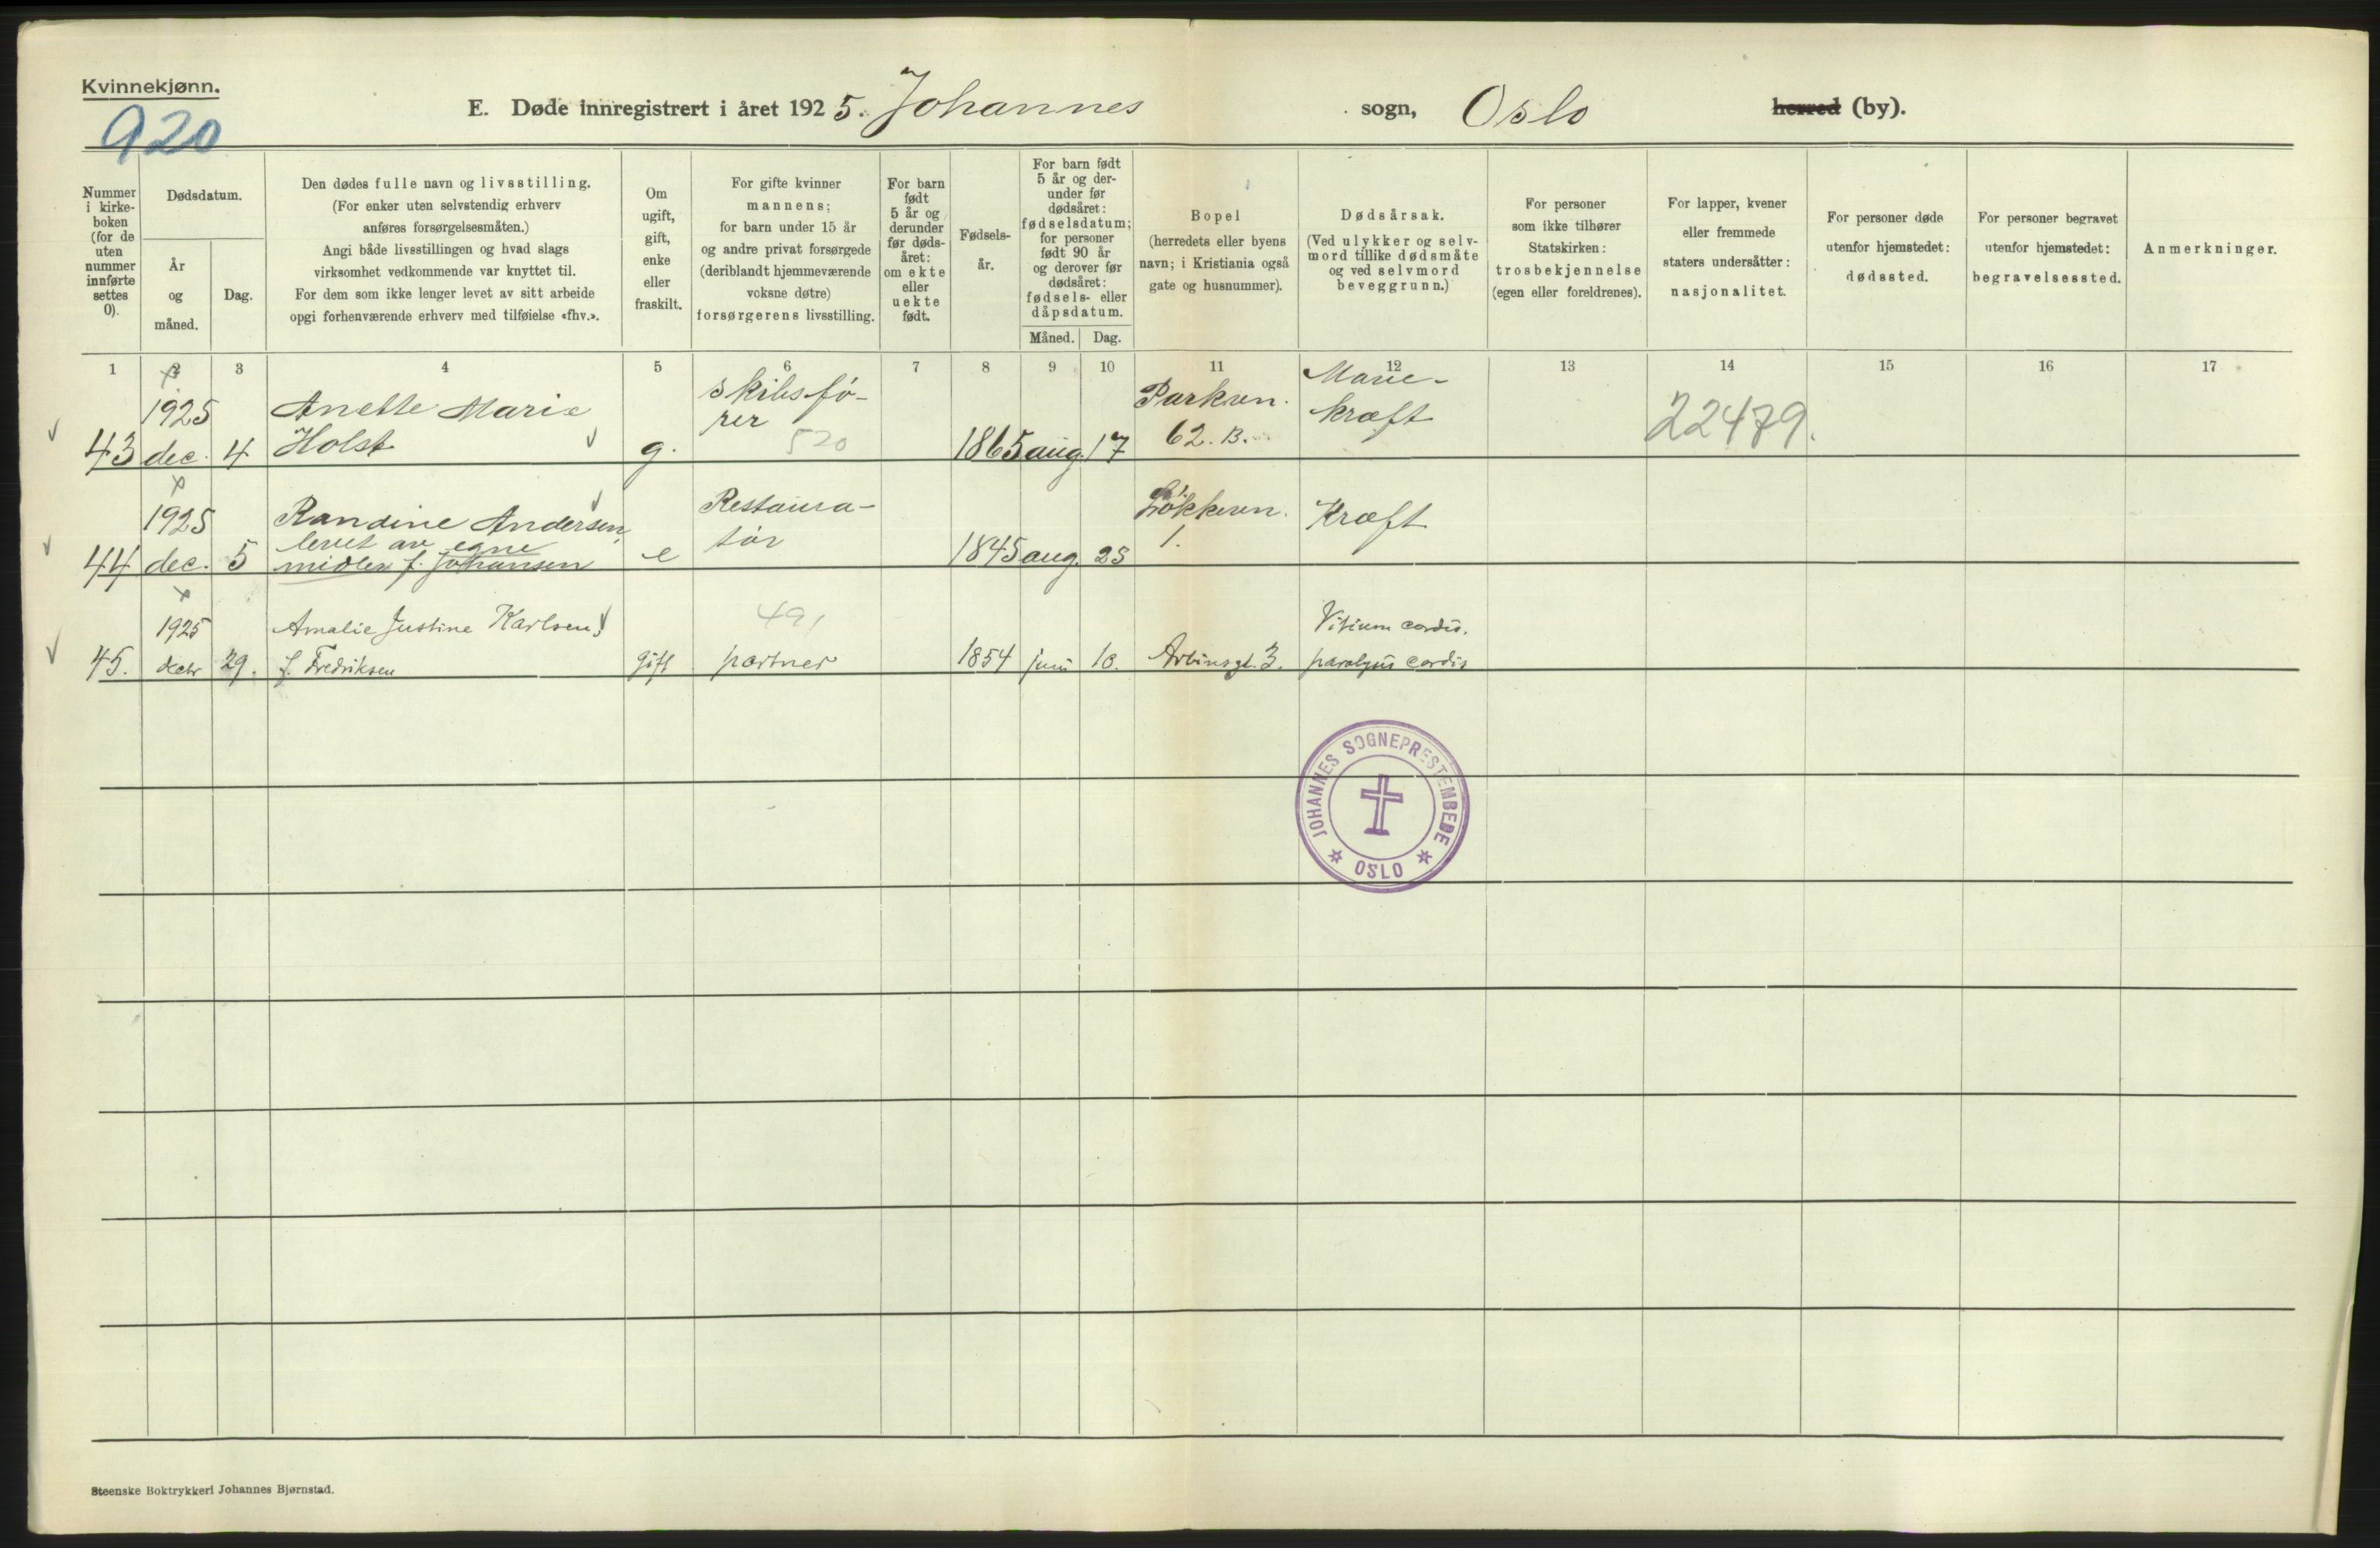 Kvinnekjønn.
920
E. Døde innregistrert i året 1925. Johannes sogn, Oslo herred (by).
Nummer i kirke-boken (for de uten nummer innførte settes 0).
Dødsdatum.
År og måned.
Dag.
Den dødes fulle navn og livsstilling.
(For enker uten selvstendig erhverv
anføres forsørgelsesmåten.)
Angi både livsstillingen og hvad slags
virksomhet vedkommende var knyttet til.
For dem som ikke lenger levet av sitt arbeide
opgi forhenværende erhverv med tilføielse «fhv.».
Om ugift, gift, enke eller fraskilt.
For gifte kvinner
mannens;
for barn under 15 år
og andre privat forsørgede
(deriblandt hjemmeværende
voksne døtre)
forsørgerens livsstilling.
For barn født 5 år og derunder før døds-året: om ekte eller uekte født.
Fødsels-år.
For barn født
5 år og der-
under før
dødsåret:
fødselsdatum;
for personer
født 90 år
og derover før
dødsåret:
fødsels- eller
dåpsdatum.
Måned. Dag.
Bopel
(herredets eller byens
navn; i Kristiania også
gate og husnummer).
Dødsårsak.
(Ved ulykker og selv-
mord tillike dødsmåte
og ved selvmord
beveggrunn.)
For personer
som ikke tilhører
Statskirken:
trosbekjennelse
(egen eller foreldrenes).
For lapper, kvener
eller fremmede
staters undersåtter:
nasjonalitet.
For personer døde
utenfor hjemstedet:
dødssted.
For personer begravet
utenfor hjemstedet:
begravelsessted.
Anmerkninger.
1 2 3 4 5 6 7 8 9 10 11 12 13 14 15 16 17
43 1925 dec. 4 Anette Marie
Holst g. skibsfø-
rer 520 1865 aug. 17 Parkvn.
62. B. Mave-
kræft 22479.
44 1925 dec. 5 Randine Andersen,
levet av egne
midler f. Johansen e Restaura-
tør 1845 aug. 25 Løkkevn.
1. Kræft
45. 1925 decbr 29. Amalie Justine Karlsen,
f. Fredriksen gift 491 partner 1854 juni 10. Arbinsgt. 3. Vitium cordis.
paralysis cordis
JOHANNES SOGNEPRESTEMBEDE
OSLO
Steenske Boktrykkeri Johannes Bjørnstad.